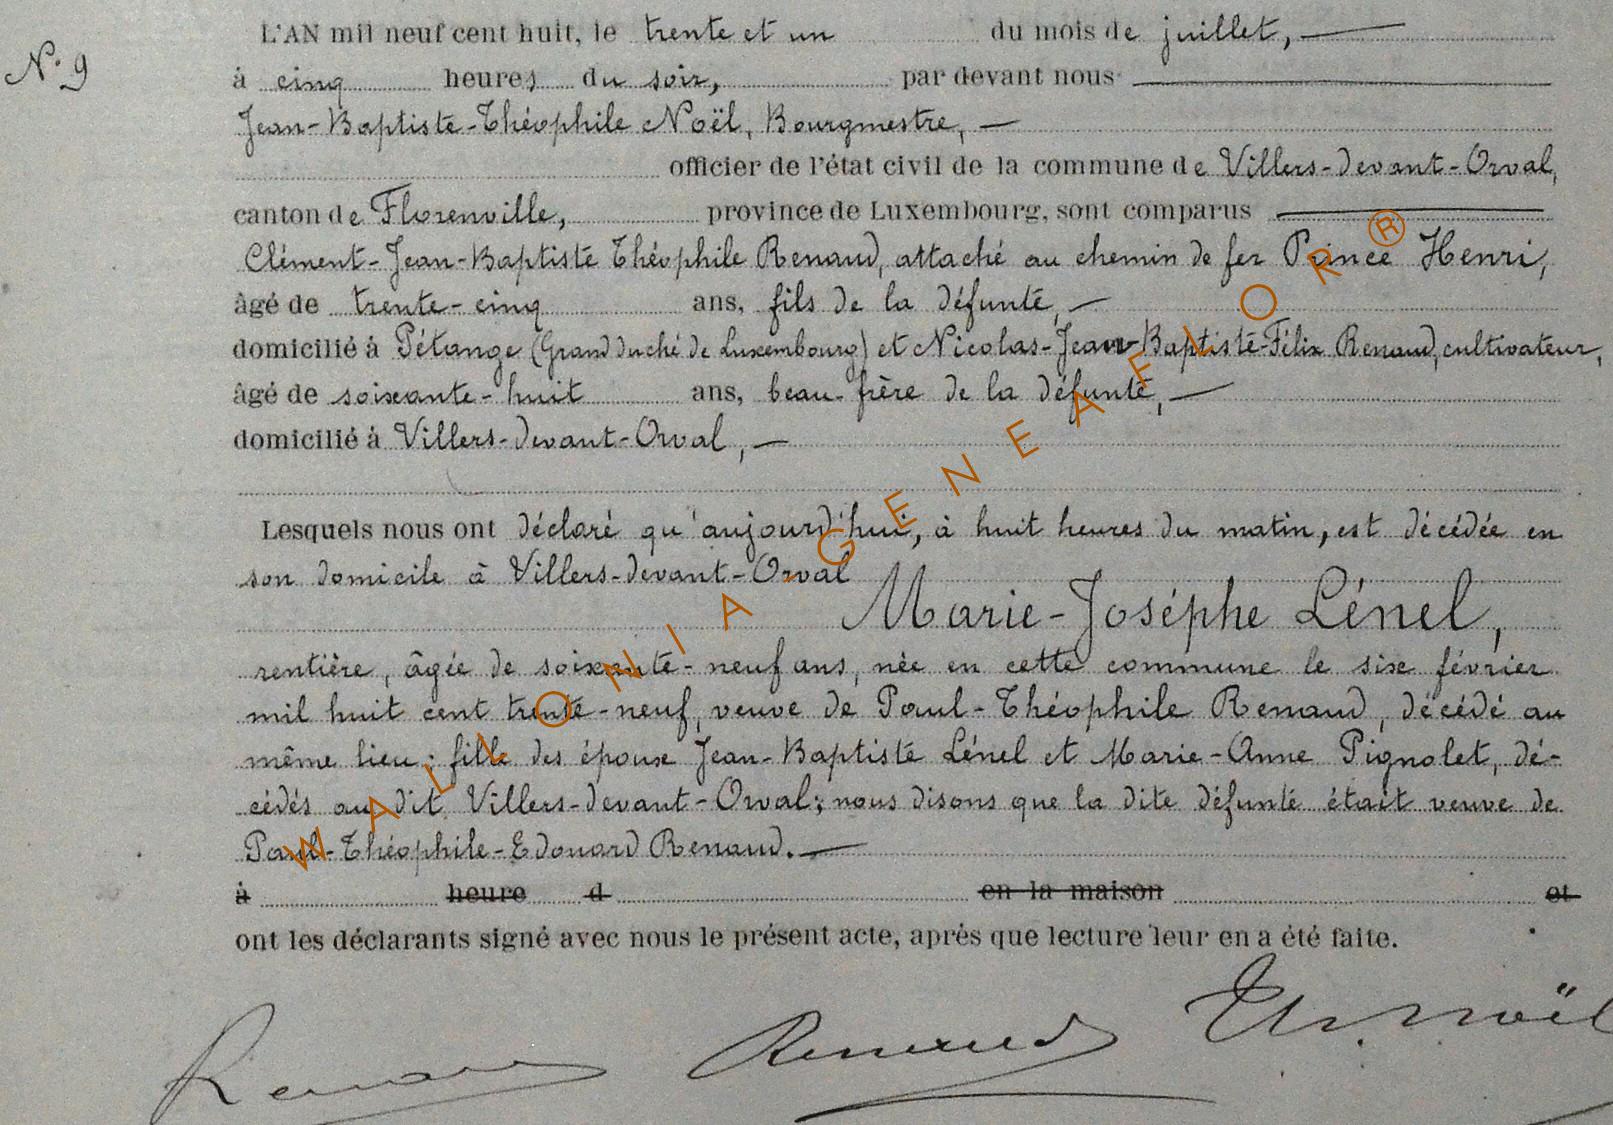 N° 9
L'AN mil neuf cent huit, le trente et un du mois de juillet, —
à cinq heures du soir, par devant nous —
Jean-Baptiste-Théophile Noël, Bourgmestre, —
officier de l'état civil de la commune de Villers-devant-Orval,
canton de Florenville, province de Luxembourg, sont comparus —
Clément-Jean-Baptiste Théophile Renaud, attaché au chemin de fer Prince Henri,
âgé de trente-cinq ans, fils de la défunte, —
domicilié à Pétange (Grand duché de Luxembourg) et Nicolas-Jean-Baptiste-Félix Renaud, cultivateur,
âgé de soixante-huit ans, beau-frère de la défunte, —
domicilié à Villers-devant-Orval, —
Lesquels nous ont déclaré qu'aujourd'hui, à huit heures du matin, est décédée en
son domicile à Villers-devant-Orval
Marie-Joséphe Lénel,
rentière, âgée de soixante-neuf ans, née en cette commune le six février
mil huit cent trente-neuf, veuve de Paul-Théophile Renaud, décédé au
même lieu; fille des époux Jean-Baptiste Lénel et Marie-Anne Pignolet, dé-
cédés au dit Villers-devant-Orval; nous disons que la dite défunte était veuve de
Paul-Théophile-Edouard Renaud. —
à heure d en la maison et
ont les déclarants signé avec nous le présent acte, après que lecture leur en a été faite.
Renaud Renaud Th. Noël
WALLONIA-GENEAFLOR®